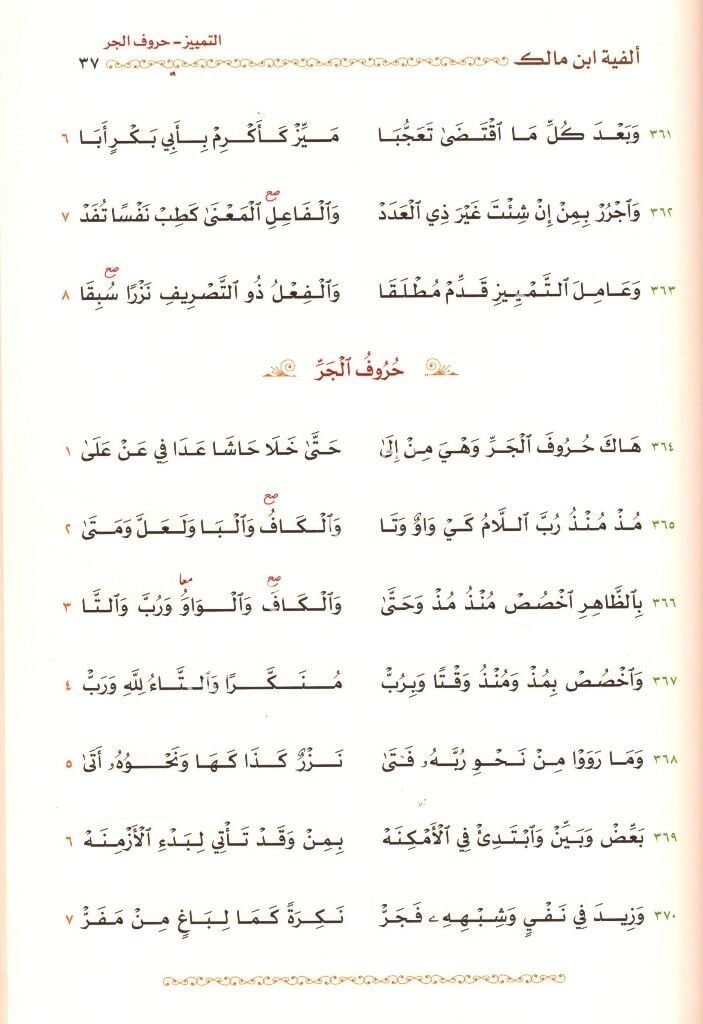 التمييز - حروف الجر
ألفية ابن مالك ٣٧
٣٦١ وَبَعْدَ كُلِّ مَا ٱقْتَضَىٰ تَعَجُّبَا مَيِّزْ كَـأَكْرِمْ بِـأَبِي بَكْرٍ أَبَا ٦
صح
٣٦٢ وَٱجْرُرْ بِمِنْ إِنْ شِئْتَ غَيْرَ ذِي ٱلْعَدَدْ وَٱلْفَاعِلِ ٱلْمَعْنَىٰ كَطِبْ نَفْسًا تُفَدْ ٧
صح
٣٦٣ وَعَامِلَ ٱلتَّمْيِيزِ قَدِّمْ مُطْلَقَا وَٱلْفِعْلُ ذُو ٱلتَّصْرِيفِ نَزْرًا سُبِقَا ٨
حُرُوفُ ٱلْجَرِّ
٣٦٤ هَاكَ حُرُوفَ ٱلْجَرِّ وَهْيَ مِنْ إِلَىٰ حَتَّىٰ خَلَا حَاشَا عَدَا فِي عَنْ عَلَىٰ ١
صح
٣٦٥ مُذْ مُنْذُ رُبَّ ٱللَّامُ كَيْ وَاوٌ وَتَا وَٱلْكَافُ وَٱلْبَا وَلَعَلَّ وَمَتَىٰ ٢
صح معا
٣٦٦ بِٱلظَّاهِرِ ٱخْصُصْ مُنْذُ مُذْ وَحَتَّىٰ وَٱلْكَافَ وَٱلْوَاوَُ وَرُبَّ وَٱلتَّا ٣
٣٦٧ وَٱخْصُصْ بِمُذْ وَمُنْذُ وَقْتًا وَبِرُبْ مُنَكَّرًا وَٱلتَّاءُ لِلَّهِ وَرَبْ ٤
٣٦٨ وَمَا رَوَوْا مِنْ نَحْوِ رُبَّهُۥ فَتَىٰ نَزْرٌ كَذَا كَهَا وَنَحْوُهُۥ أَتَىٰ ٥
٣٦٩ بَعِّضْ وَبَيِّنْ وَٱبْتَدِئْ فِي ٱلْأَمْكِنَهْ بِمِنْ وَقَدْ تَأْتِي لِبَدْءِ ٱلْأَزْمِنَهْ ٦
٣٧٠ وَزِيدَ فِي نَفْيٍ وَشِبْهِهِۦ فَجَرّْ نَكِرَةً كَمَا لِبَاغٍ مِنْ مَفَرّْ ٧